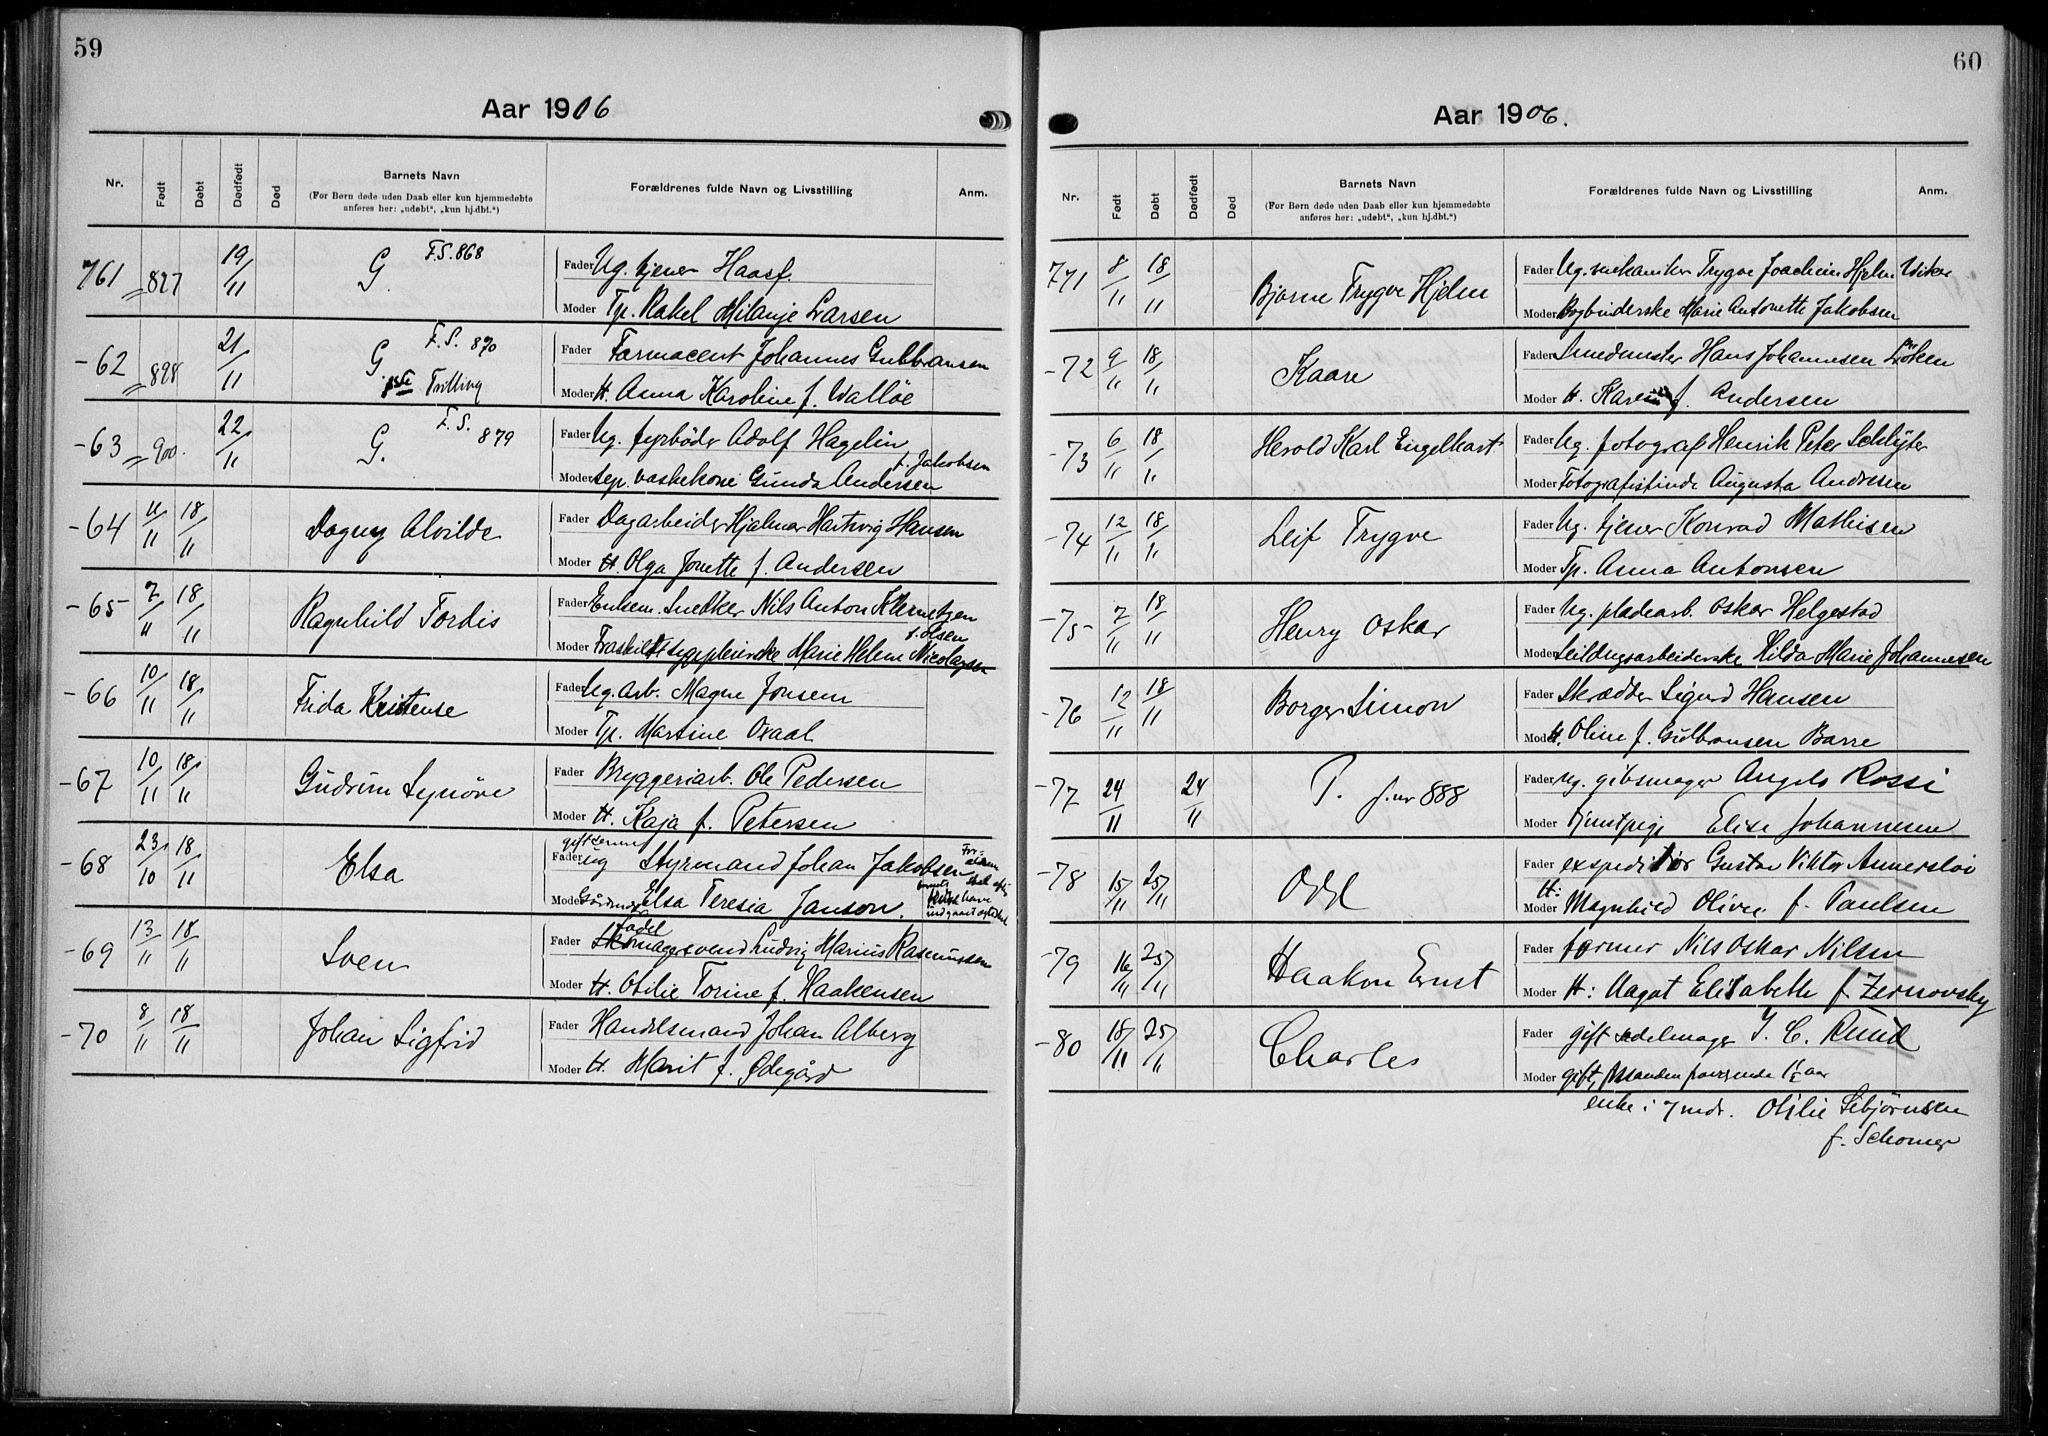 59
Aar 1906
Nr. Født Døbt Dødfødt Død Barnets Navn Forældrenes fulde Navn og Livsstilling Anm.
(For Børn døde uden Daab eller kun hjemmedøbte
anføres her: „udøbt“, „kun hj.dbt.“)
761 897 19/11 G. F.S. 868 Fader Ug. tjener Haasf.
Moder Tp. Rakel Milanje Larsen
-62 898 21/11 G. F.S. 870 Fader Farmaceut Johannes Gulbransen
Tvilling Moder H. Anna Karoline f. Walløe
-63 900. 22/11 G. F.S. 879 Fader Ug. fyrbøder Adolf Hagelin
f. Jakobsen
Moder sep. vaskekone Gunda Andersen
-64 11/11 18/11 Dagny Alvilde Fader Dagarbeider Hjalmar Hartvig Hansen
Moder H. Olga Jonette f. Andersen
-65 7/11 18/11 Ragnhild Tordis Fader Enkem. Snekker Nils Anton Klemetzen
f. Olsen
Moder Fraskilt sygepleierske Marie Helene Nicolaysen
-66 10/11 18/11 Frida Kristense Fader Ug. arb. Magne Jonsen
Moder Tp. Martine Oxaal
-67 10/11 18/11 Gudrun Synøve Fader Bryggeriarb. Ole Pedersen
Moder H. Kaja f. Petersen
-68 23/10 18/11 Elsa Fader ug Styrmand Johan Jakobsen
Moder Elsa Teresia Janson.
have
indgaaet ægteskab
-69 13/11 18/11 Sven Fader Skomagersvend Ludvig Marius Rasmussen
Sadel
Moder H. Otilie Torine f. Haakensen
-70 8/11 18/11 Johan Sigfrid Fader Handelsmand Johan Alberg
Moder H. Marit f. Ødegård
60
Aar 1906.
Nr. Født Døbt Dødfødt Død Barnets Navn Forældrenes fulde Navn og Livsstilling Anm.
(For Børn døde uden Daab eller kun hjemmedøbte
anføres her: „udøbt“, „kun hj.dbt.“)
771 8/11 18/11 Bjarne Trygve Hjelm Fader Ug. mekaniker Trygve Joachim Hjelm Wiker
Moder Bogbinderske Marie Antonette Jakobsen
-72 9/11 18/11 Kaare Fader Smedemster Hans Johannesen Løken
Moder H. Karen f. Andersen
-73 6/11 18/11 Herold Karl Engelhart Fader Ug. fotograf Henrik Peter Schlyter
Moder Fotografistinde Augusta Andresen
-74 12/11 18/11 Leif Trygve Fader Ug. tjener Konrad Mathisen
Moder Tp. Anna Antonsen
-75 7/11 18/11 Henry Oskar Fader Ug. pladearb. Oskar Helgestad
Moder Seildugsarbeiderske Hilda Marie Johannesen
-76 12/11 18/11 Borger Simon Fader Skrædder Sigurd Hansen
Moder H. Oline f. Gulbransen Barre
-77 24/11 24/11 P. f. nr 888 Fader Ug. gibsmager Angelo Rossi
Moder Tjenstpige Elise Johannesen
-78 15/11 25/11 Odd Fader expeditør Gustav Viktor Annersløi
H: Moder Magnhild Olivie f. Paulsen
-79 16/11 25/11 Haakon Ernst Fader former Nils Oskar Nilsen
Moder H: Aagot Elisabeth f. Zernovsky
-80 18/11 25/11 Charles Fader gift sadelmager I. C. Ruud
Moder gift, f
enke i 7 mdr. Otilie Sebjørnsen
f. Schomer